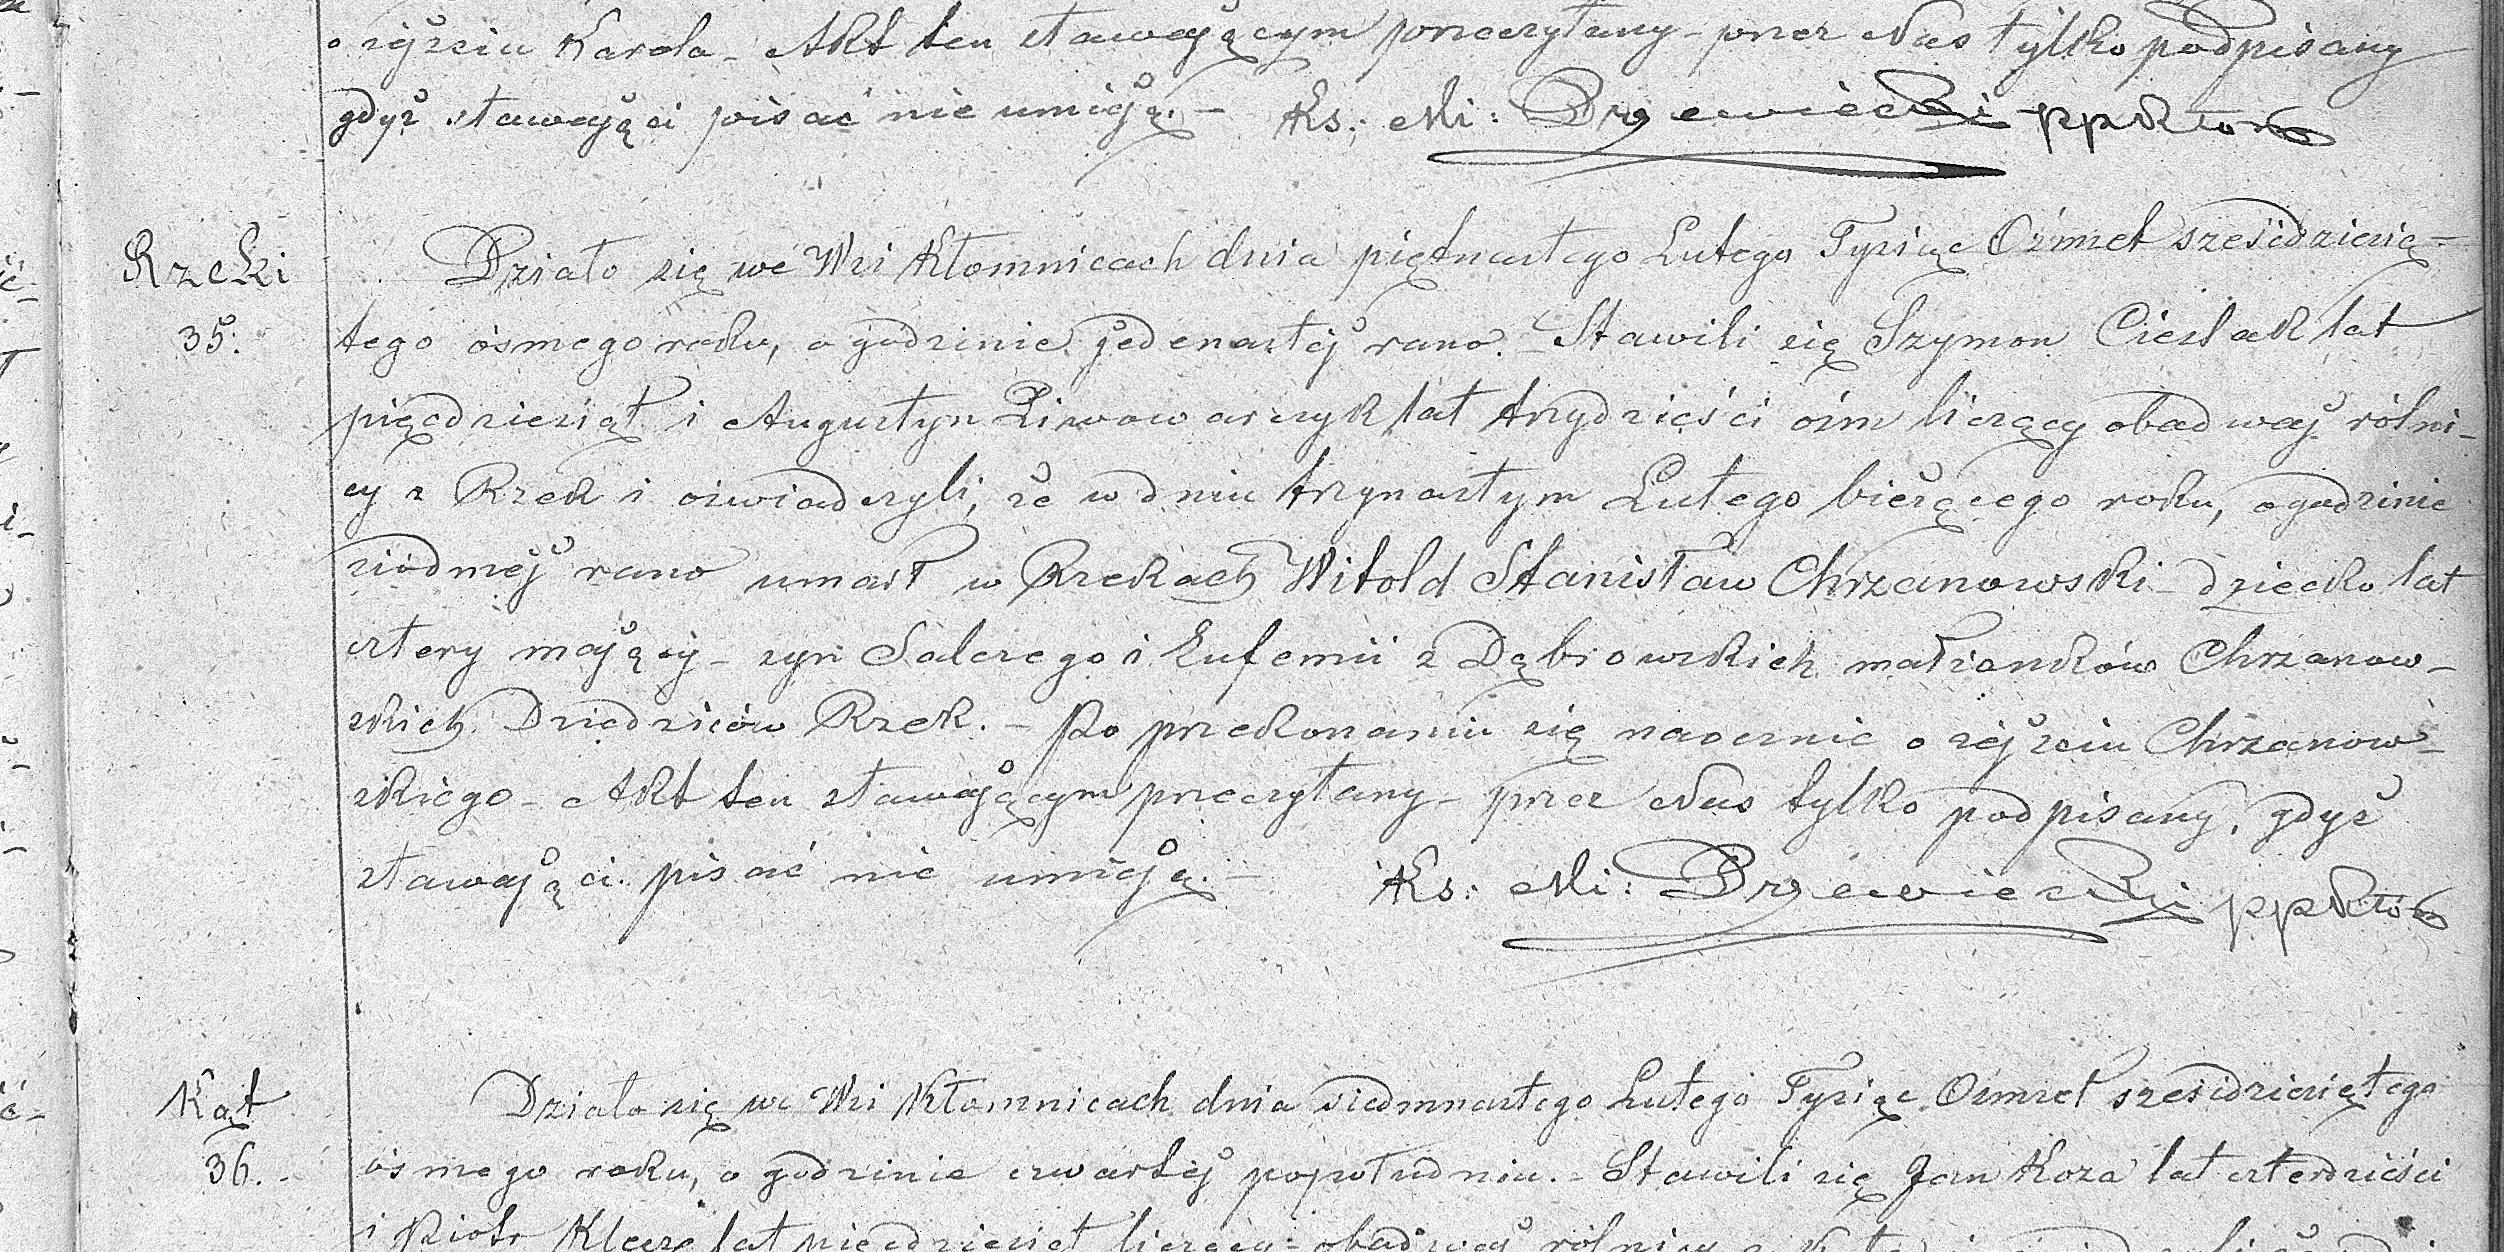 o zejściu Karola – Akt ten stawającym przeczytany – przez Nas tylko podpisany
gdyż stawający pisać nie umieją. – Ks: Mi: Drzewiecki ppktom
Rzeki
35.
Działo się we Wsi Kłomnicach dnia piętnastego Lutego Tysiąc Ośmset sześćdziesią-
tego ósmego roku, o godzinie jedenastej rano. – Stawili się Szymon Cieślak lat
pięćdziesiąt i Augustyn Piwowarczyk lat trzydzieści ośm liczący obadwaj rolni-
cy z Rzek i oświadczyli, że w dniu trzynastym Lutego bieżącego roku, o godzinie
siódmej rano umarł w Rzekach Witold Stanisław Chrzanowski – dziecko lat
cztery mający – syn Salezego i Eufemii z Dąbrowskich małżonków Chrzanow-
skich Dziedziców Rzek. – Po przekonaniu się naocznie o zejściu Chrzanow-
skiego – Akt ten stawającym przeczytany – przez Nas tylko podpisany, gdyż
stawający pisać nie umieją. – Ks: Mi: Drzewiecki
Kąt
36.
Działo się we Wsi Kłomnicach dnia siedmnastego Lutego Tysiąc Ośmset sześćdziesiątego
ósmego roku, o godzinie czwartej popołudniu. – Stawili się Jan Koza lat czterdzieści
i Piotr lat pięćdziesiąt liczący – obadwaj rolnicy z